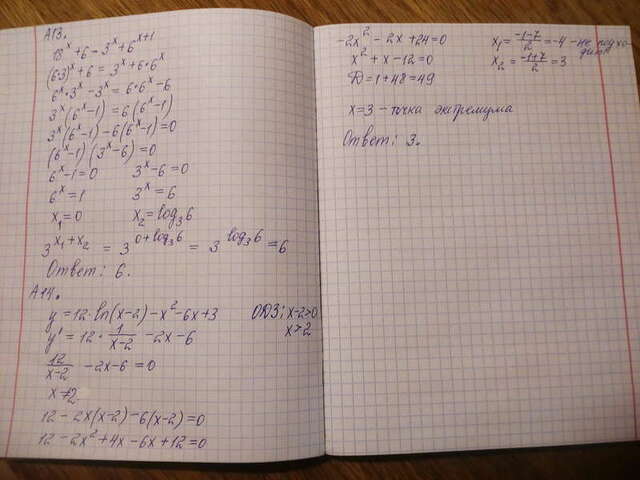 А13.
18^x + 6 = 3^x + 6^(x+1)
(6·3)^x + 6 = 3^x + 6·6^x
6^x · 3^x - 3^x = 6·6^x - 6
3^x (6^x - 1) = 6 (6^x - 1)
3^x (6^x - 1) - 6 (6^x - 1) = 0
(6^x - 1) (3^x - 6) = 0
6^x - 1 = 0    3^x - 6 = 0
6^x = 1    3^x = 6
x₁ = 0    x₂ = log₃6
3^(x₁ + x₂) = 3^(0 + log₃6) = 3^(log₃6) = 6
Ответ: 6.
А14.
y = 12·ln(x-2) - x² - 6x + 3    ОДЗ: x-2>0
y' = 12 · 1/(x-2) - 2x - 6    x>2
12/(x-2) - 2x - 6 = 0
x ≠ 2
12 - 2x(x-2) - 6(x-2) = 0
12 - 2x² + 4x - 6x + 12 = 0
-2x² - 2x + 24 = 0    x₁ = (-1-7)/2 = -4 - не подхо-
дит
x² + x - 12 = 0    x₂ = (-1+7)/2 = 3
D = 1 + 48 = 49
x = 3 - точка экстремума
Ответ: 3.